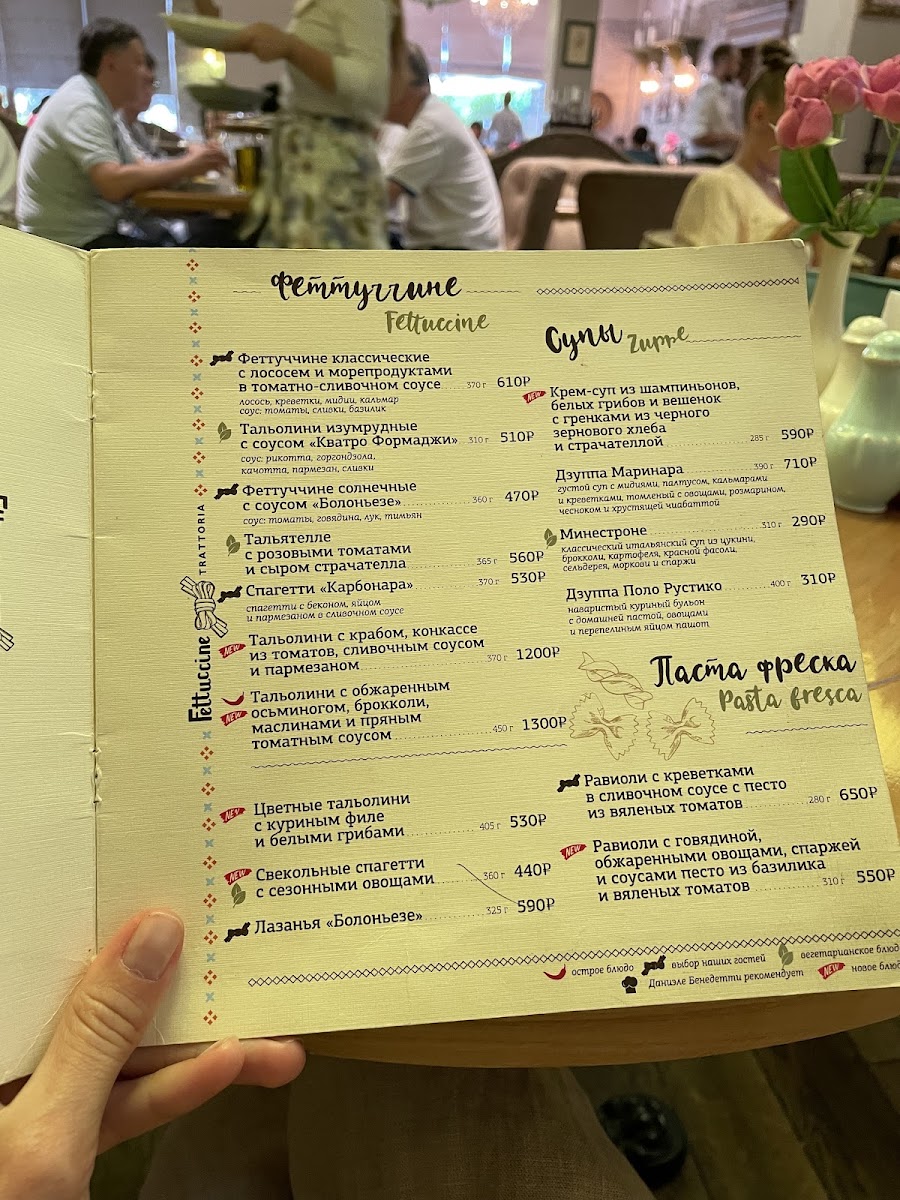 Феттуччине
Fettuccine
Феттуччине классические
с лососем и морепродуктами
в томатно-сливочном соусе 370 г 610₽
лосось, креветки, мидии, кальмар
соус: томаты, сливки, базилик
Тальолини изумрудные
с соусом «Кватро Формаджи» 310 г 510₽
соус: рикотта, горгондзола,
качотта, пармезан, сливки
Феттуччине солнечные
с соусом «Болоньезе» 360 г 470₽
соус: томаты, говядина, лук, тимьян
Тальятелле
с розовыми томатами
и сыром страчателла 365 г 560₽
Спагетти «Карбонара» 370 г 530₽
спагетти с беконом, яйцом
и пармезаном в сливочном соусе
NEW Тальолини с крабом, конкассе
из томатов, сливочным соусом
и пармезаном 370 г 1200₽
Тальолини с обжаренным
NEW осьминогом, брокколи,
маслинами и пряным
томатным соусом 450 г 1300₽
NEW Цветные тальолини
с куриным филе
и белыми грибами 405 г 530₽
NEW Свекольные спагетти
с сезонными овощами 360 г 440₽
Лазанья «Болоньезе» 325 г 590₽
Fettuccine TRATTORIA
Супы Zuppe
NEW Крем-суп из шампиньонов,
белых грибов и вешенок
с гренками из черного
зернового хлеба
и страчателлой 285 г 590₽
Дзуппа Маринара 390 г 710₽
густой суп с мидиями, палтусом, кальмарами
и креветками, томленый с овощами, розмарином,
чесноком и хрустящей чиабаттой
Минестроне 310 г 290₽
классический итальянский суп из цукини,
брокколи, картофеля, красной фасоли,
сельдерея, моркови и спаржи
Дзуппа Поло Рустико 400 г 310₽
наваристый куриный бульон
с домашней пастой, овощами
и перепелиным яйцом пашот
Паста фреска
Pasta fresca
Равиоли с креветками
в сливочном соусе с песто
из вяленых томатов 280 г 650₽
NEW Равиоли с говядиной,
обжаренными овощами, спаржей
и соусами песто из базилика
и вяленых томатов 310 г 550₽
острое блюдо выбор наших гостей вегетарианское блюд
Даниэле Бенедетти рекомендует NEW новое блюд